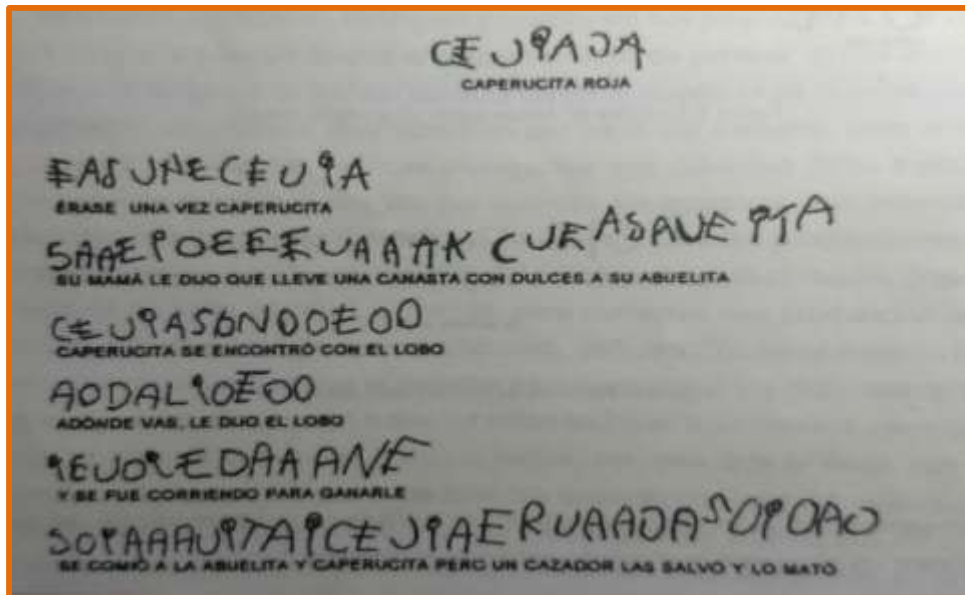 CEJIAJA
CAPERUCITA ROJA
EASUNECEUIA
ÉRASE UNA VEZ CAPERUCITA
SAAEPOEEEUAAAK CUEASAUEPITA
SU MAMÁ LE DIJO QUE LLEVE UNA CANASTA CON DULCES A SU ABUELITA
CEUIASBNOOEOO
CAPERUCITA SE ENCONTRÓ CON EL LOBO
AODALIOEOO
ADÓNDE VAS, LE DIJO EL LOBO
IEUOIEDAAANE
Y SE FUE CORRIENDO PARA GANARLE
SOIAAAUITAICEJIAERUAAOASOIOAO
SE COMIÓ A LA ABUELITA Y CAPERUCITA PERO UN CAZADOR LAS SALVO Y LO MATO